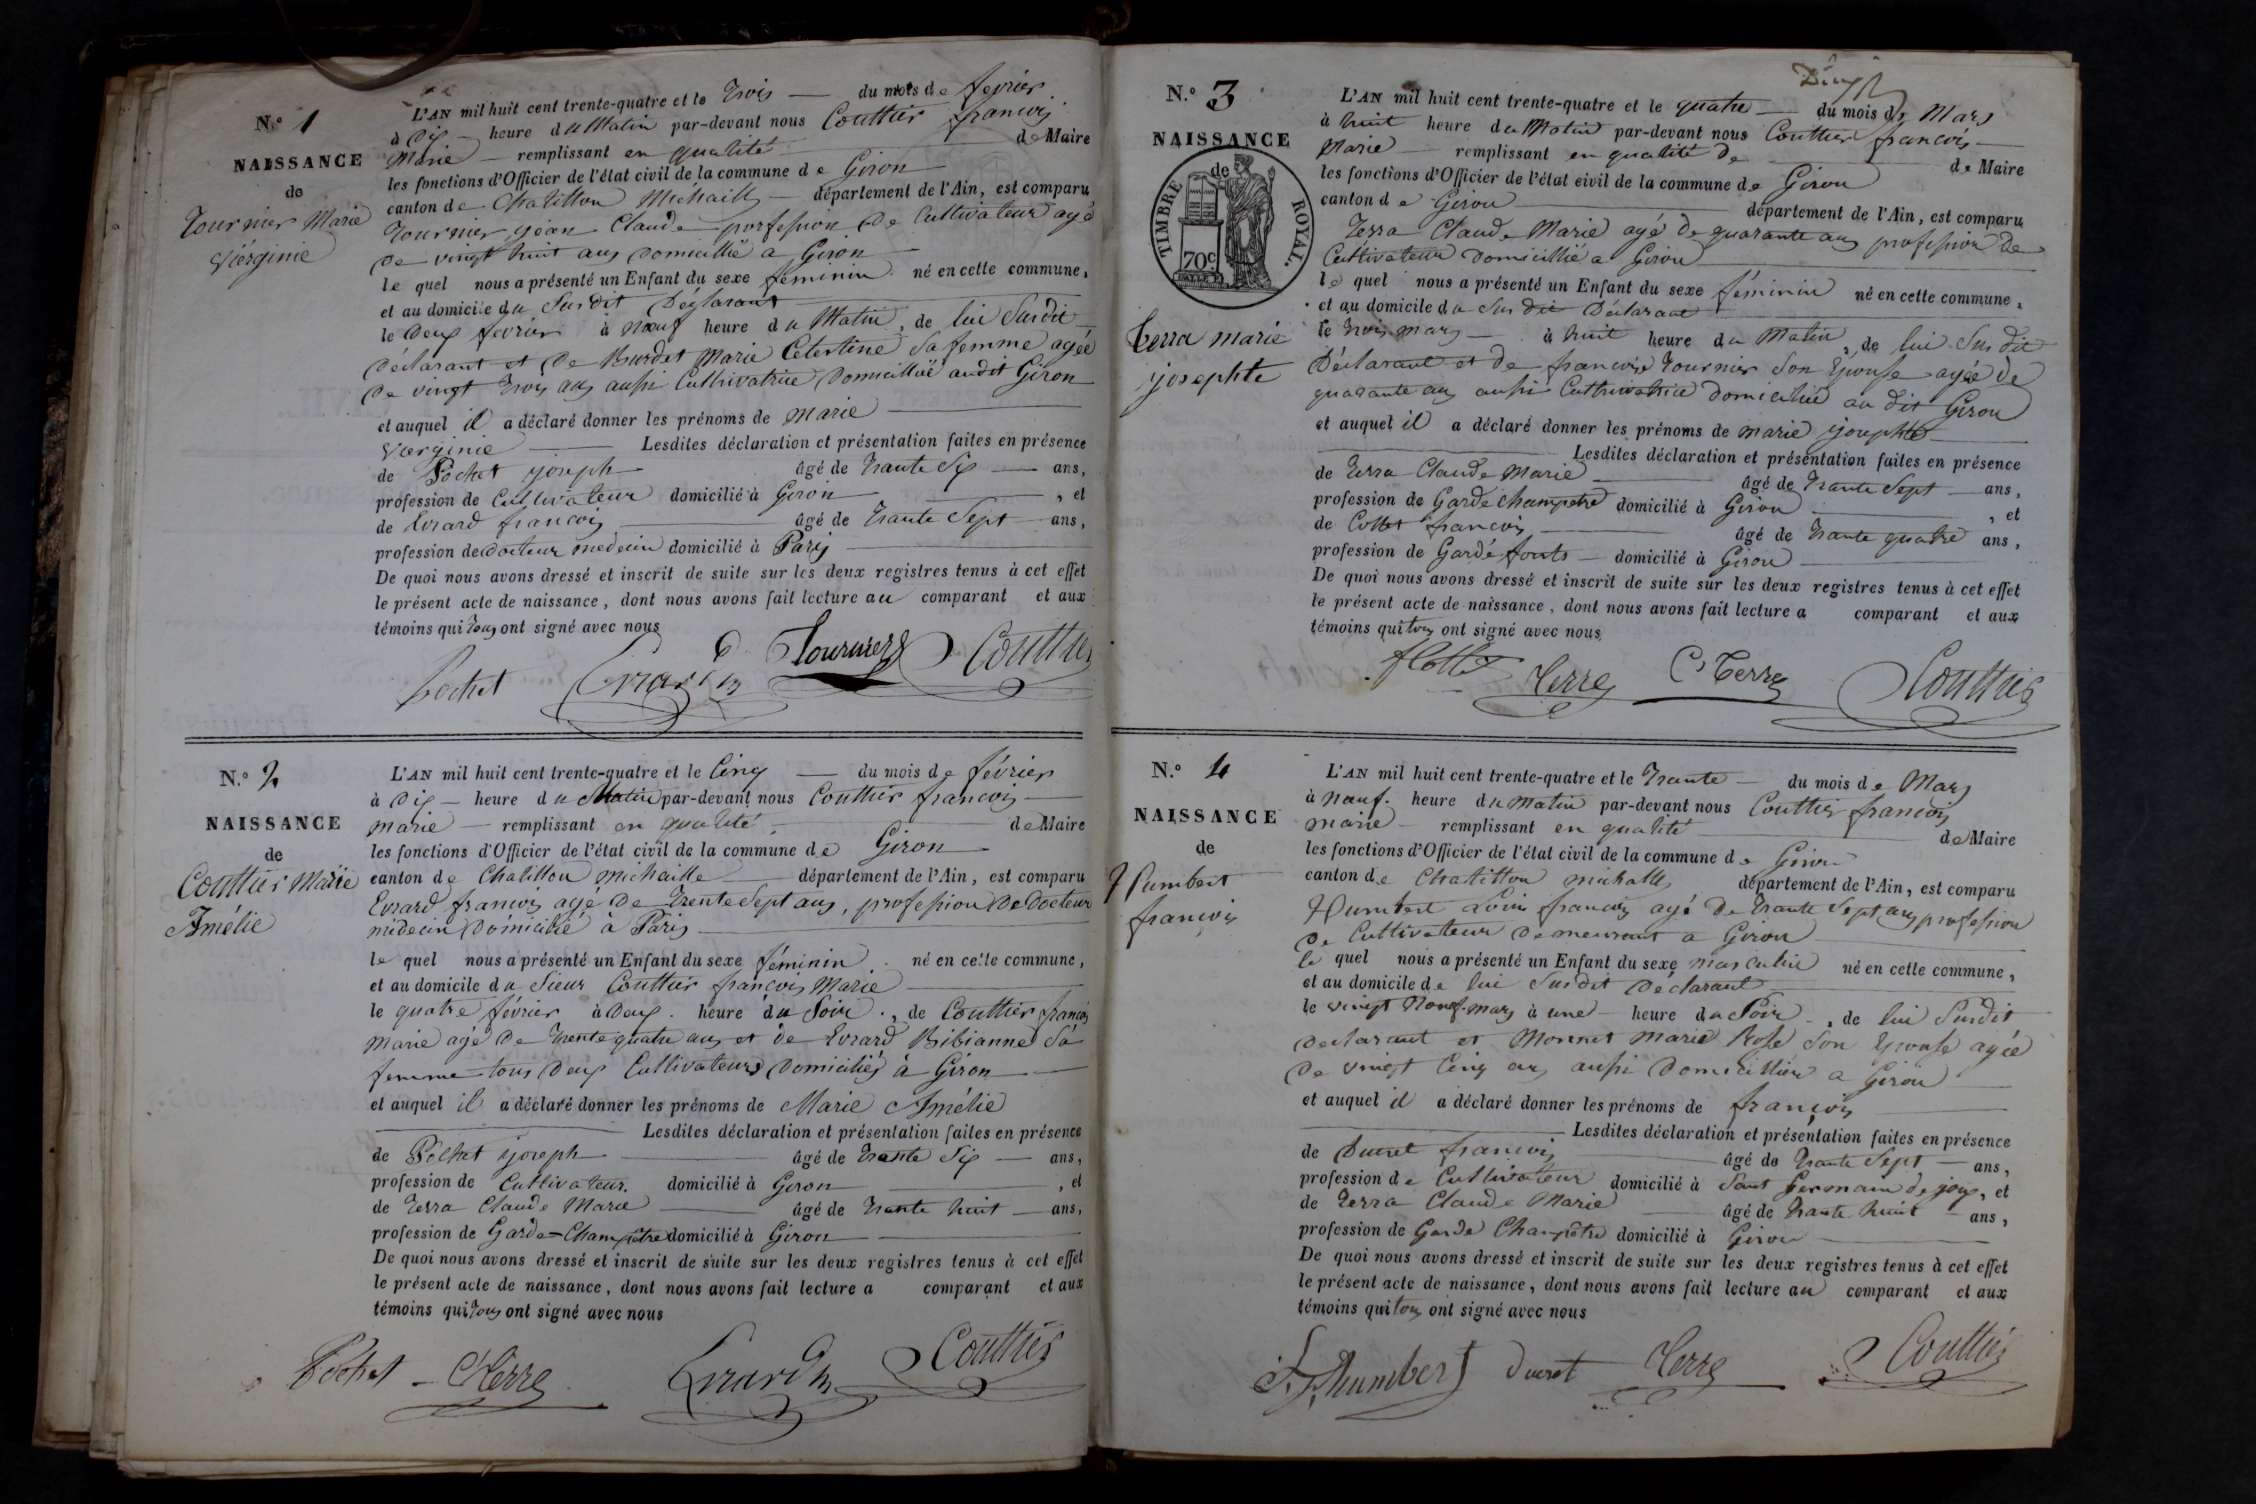 N.º 1
NAISSANCE
de
Tournier Marie
Vierginie
L'AN mil huit cent trente-quatre et le trois du mois de fevrier
à dix heure du Matin par-devant nous Couttier francois
Marie remplissant en qualité de Maire
les fonctions d'Officier de l'état civil de la commune de Giron
canton de Chatillon Michaille département de l'Ain, est comparu
Tournier jean Claude porfession de Cultivateur agé
de vingt huit ans domicillié a Giron
le quel nous a présenté un Enfant du sexe féminin né en cette commune,
et au domicile du Susdit Déclarant
le deux fevrier à nœuf heure du Matin, de lui Susdit
déclarant et de Burdet Marie Celestine Sa femme agée
de vingt trois ans aussi Cultivatrice Domicilliée audit Giron
et auquel il a déclaré donner les prénoms de marie
Vierginie Lesdites déclaration et présentation faites en présence
de Pochet joseph âgé de trante Six ans,
profession de Cultivateur domicilié à Giron, et
de Evrard francois âgé de trante Sept ans,
profession de docteur medecin domicilié à Paris
De quoi nous avons dressé et inscrit de suite sur les deux registres tenus à cet effet
le présent acte de naissance, dont nous avons fait lecture au comparant et aux
témoins qui tous ont signé avec nous
Pochet Evrard Tournier Couttier
N.º 2
NAISSANCE
de
Couttier Marie
Amélie
L'AN mil huit cent trente-quatre et le Cinq du mois de février
à dix heure du Matin par-devant nous Couttier francois
marie remplissant en qualité de Maire
les fonctions d'Officier de l'état civil de la commune de Giron
canton de Chatillon michaille département de l'Ain, est comparu
Evrard francois agé de trente Sept ans, profession de Docteur
médecin Domicilié à Paris
le quel nous a présenté un Enfant du sexe féminin né en cette commune,
et au domicile du Sieur Couttier francois Marie
le quatre février à deux heure du Soir, de Couttier francois
Marie agé de trente quatre ans et de Evrard Bibianne Sa
femme tous deux Cultivateurs Domiciliés à Giron
et auquel il a déclaré donner les prénoms de Marie Amélie
Lesdites déclaration et présentation faites en présence
de Pochet joseph âgé de trante Six ans,
profession de Cultivateur domicilié à Giron, et
de Terra Claude Marie âgé de trante huit ans,
profession de Garde-Champêtre domicilié à Giron
De quoi nous avons dressé et inscrit de suite sur les deux registres tenus à cet effet
le présent acte de naissance, dont nous avons fait lecture a comparant et aux
témoins qui tous ont signé avec nous
Pochet C Terra Evrard Couttier
N.º 3
NAISSANCE
de
TIMBRE ROYAL.
70c
Terra marie
josephte
L'AN mil huit cent trente-quatre et le quatre du mois de Mars
à huit heure du Matin par-devant nous Couttier francois
Marie remplissant en qualité de de Maire
les fonctions d'Officier de l'état civil de la commune de Giron
canton de Giron département de l'Ain, est comparu
Terra Claude Marie agé de quarante ans profession de
Cultivateur domicillié a Giron
le quel nous a présenté un Enfant du sexe féminin né en cette commune,
et au domicile du Sus dit Déclarant
le trois mars à huit heure du Matin, de lui Sus dit
Déclarant et de francoise Tournier Son Epouse agée de
quarante ans aussi Culthivatrice domiciliée au dit Giron
et auquel il a déclaré donner les prénoms de marie josephte
Lesdites déclaration et présentation faites en présence
de Terra Claude Marie âgé de trante Sept ans,
profession de Garde champetre domicilié à Giron, et
de Collet francois âgé de trante quatre ans,
profession de Garde domicilié à Giron
De quoi nous avons dressé et inscrit de suite sur les deux registres tenus à cet effet
le présent acte de naissance, dont nous avons fait lecture a comparant et aux
témoins qui tous ont signé avec nous
Terra C Terra Couttier
N.º 4
NAISSANCE
de
Humbert
francois
L'AN mil huit cent trente-quatre et le trante du mois de Mars
à nœuf heure du matin par-devant nous Couttier francois
marie remplissant en qualité de Maire
les fonctions d'Officier de l'état civil de la commune de Giron
canton de Chatillon michaille département de l'Ain, est comparu
Humbert Louis francois agé de trante Sept ans profession
de Cultivateur demeurant a Giron
le quel nous a présenté un Enfant du sexe masculin né en cette commune,
et au domicile de lui Susdit Déclarant
le vingt noeuf mars à une heure du Soir, de lui Susdit
declarant et Monnet Marie Rose Son Epouse agée
de vingt Cinq ans aussi Domicilliée a Giron
et auquel il a déclaré donner les prénoms de françois
Lesdites déclaration et présentation faites en présence
de Ducret francois âgé de trante Sept ans,
profession de Cultivateur domicilié à Saint Germain de joux, et
de Terra Claude Marie âgé de trante huit ans,
profession de Garde Champêtre domicilié à Giron
De quoi nous avons dressé et inscrit de suite sur les deux registres tenus à cet effet
le présent acte de naissance, dont nous avons fait lecture au comparant et aux
témoins qui tous ont signé avec nous
Humbert Ducret Terra Couttier